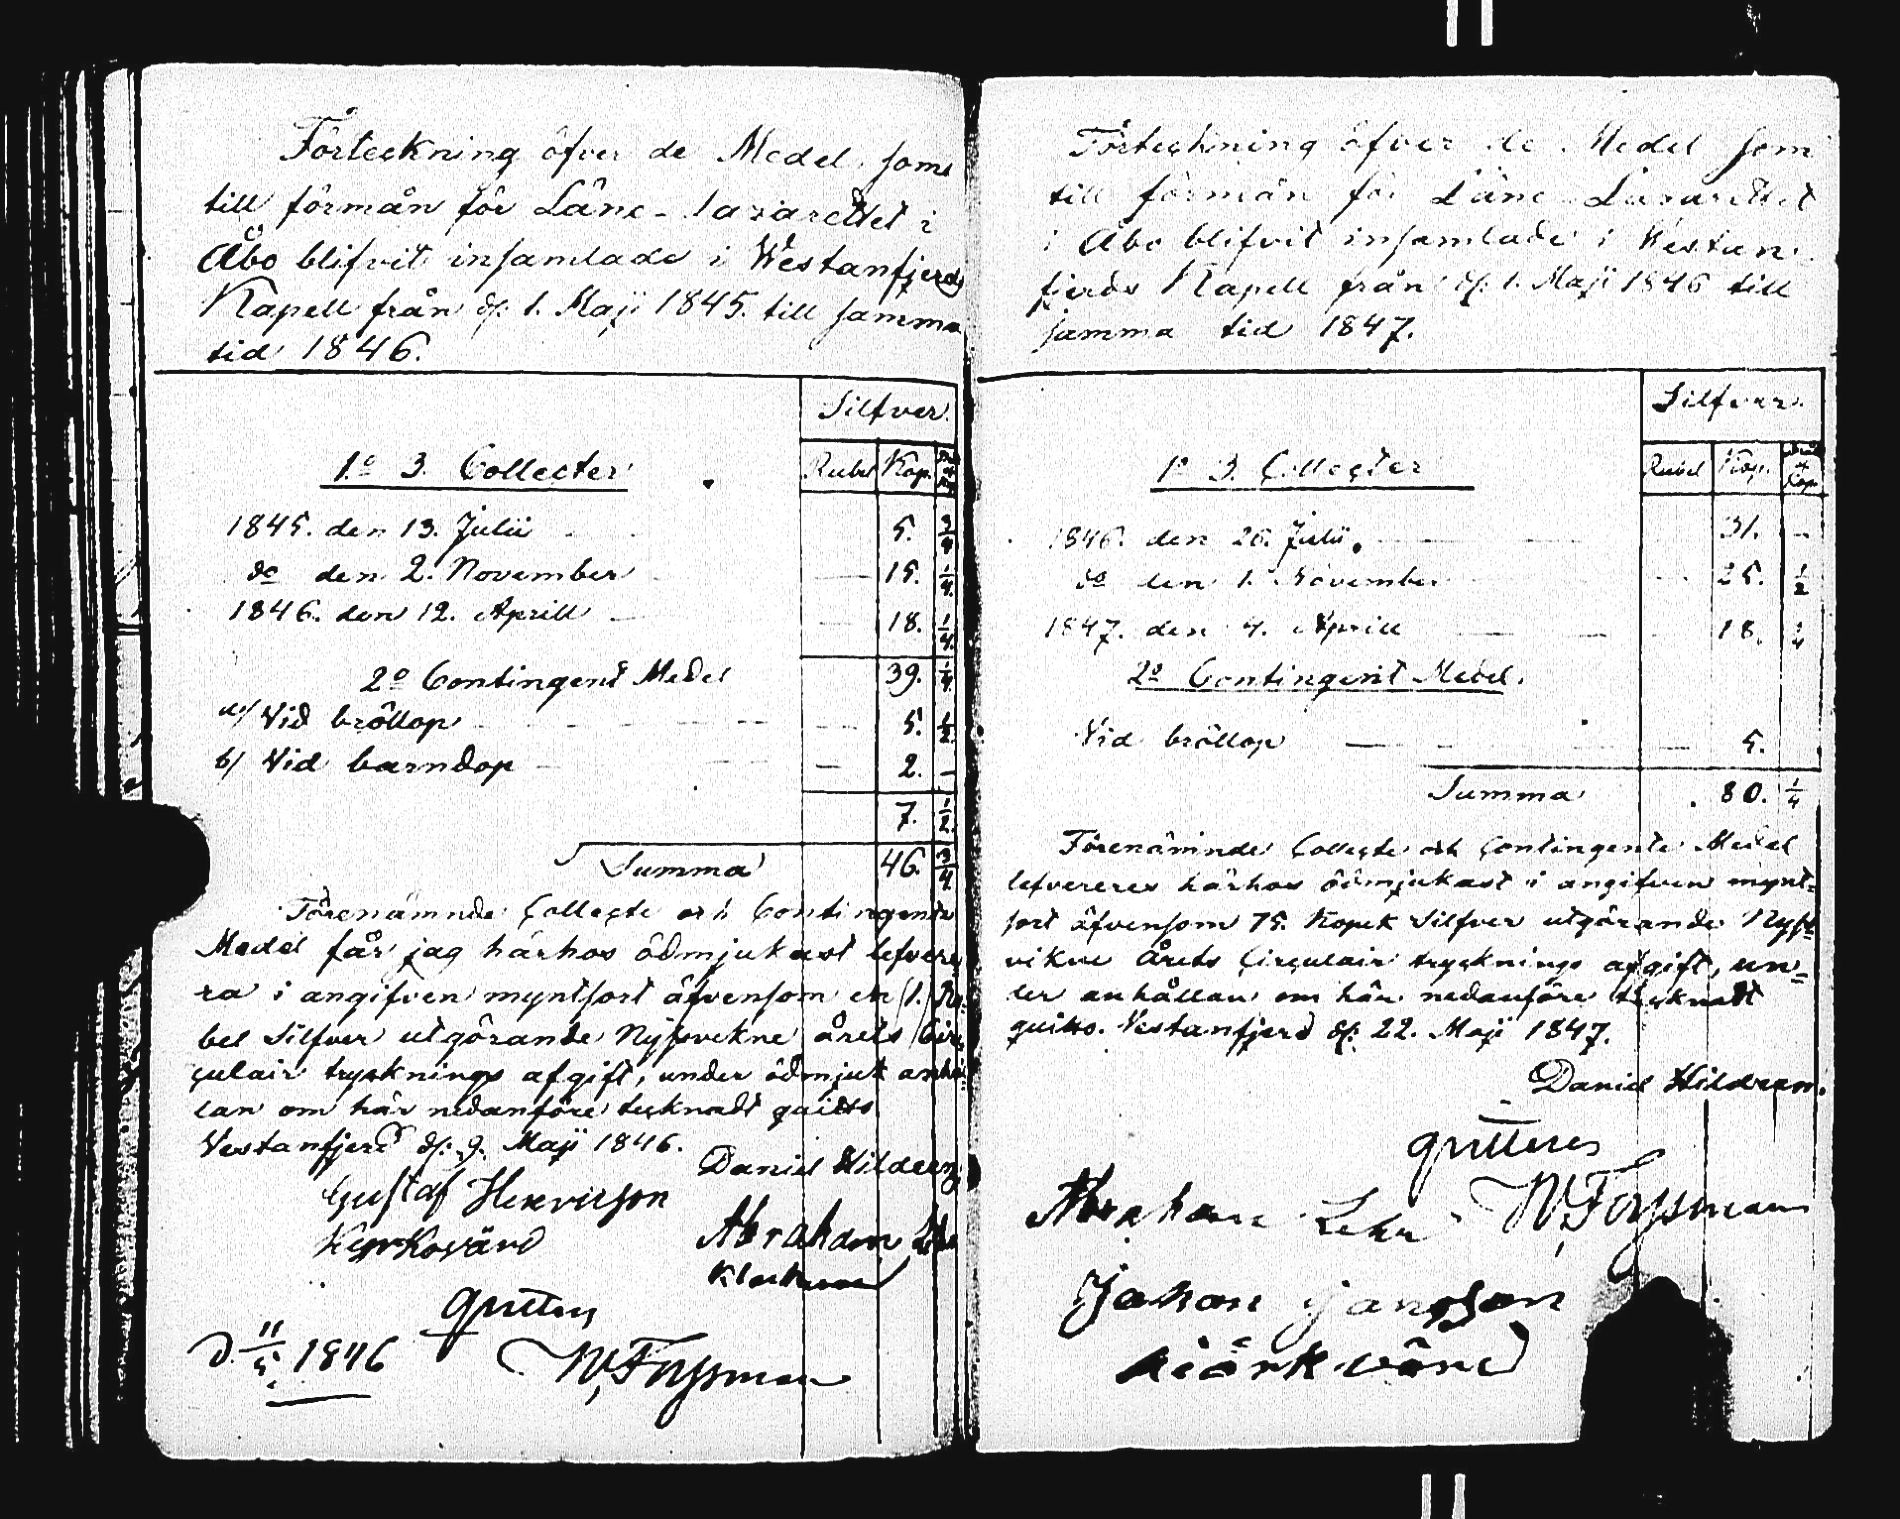 Förteckning öfver de Medel som
till förmån för Läne-lazarettet i
Åbo blifvit insamlade i Westanfjerds
Kapell från d: 1. Maji 1845. till samma
tid 1846.
Silfver.
1:o 3. Collecter Rubel Kop.
1845. den 13. Julii 5. 3/4
do den 2. November 15. 1/4
1846. den 12. Aprill 18. 1/4
39. 1/4
2:o Contingent Medel
a/ Vid bröllop 5. 1/2
b/ Vid barndop 2. –
7. 1/2
Summa 46. 3/4
Förenämnde Collecte och Contingents
Medel får jag härhos ödmjukast lefvere
ra i angifven myntsort äfvensom en /1./ Ru
bel Silfver utgörande Nyssvikne årets Cir
culair trycknings afgift, under ödmjuk anhå
lan om här nedanföre tecknadt quitto
Vestanfjerd d: 9. Maji 1846.
Daniel
Gustaf
Abraham
qvitteras
d. 11/5 1846 W. Forssman

Förteckning öfver de Medel som
till förmån för Läne Lazarettet
i Åbo blifvit insamlade i Westan
fjerds Kapell från d: 1. Maji 1846 till
samma tid 1847.
Silfver.
1:o 3. Collecter Rubel Kop. Bråk af Kop
1846. den 26. Julii. 31. –
do den 1. November 25. 1/2
1847. den 4. Aprill 18. 3/4
2:o Contingent Medel.
Vid bröllop 5.
Summa 80. 1/4
Förenämnde Collecte och Contingente Medel
lefvereres härhos ödmjukast i angifven mynt=
sort äfvensom 75. Kopek Silfver utgörande Nyss=
vikne Årets Circulair trycknings afgift, un=
der anhållan om här nedanföre tecknadt
quitto. Vestanfjerd d: 22. Maji 1847.
Daniel
qvitteras
Abraham Lehn W. Forssman
Johan Jansson
kiörkvärd